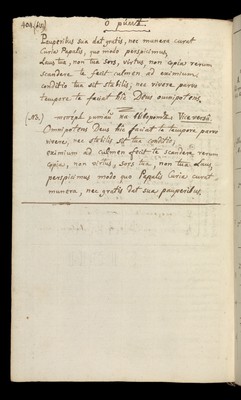 Pauperibus sua dat gratis, nec munera curat
Curia Papalis, quo modo perspicimus,
Laus tua, non tua sors, virtus non copia rerum
scandere te fecit culmen ad eximium,
conditio tua sit stabilis, nec vivere parvo
tempore te faciat hic Deus omnipotens.
Vice versâ:
Omnipotens Deus hic faciat te tempore parvo
vivere, nec stabilis sit tua conditio,
eximium ad culmen fecit te scandere rerum
copia, non virtus, sors tua, non tua Laus,
perspicimus modo quo Papalis Curia curat
munera, nec gratis dat sua pauperibus.